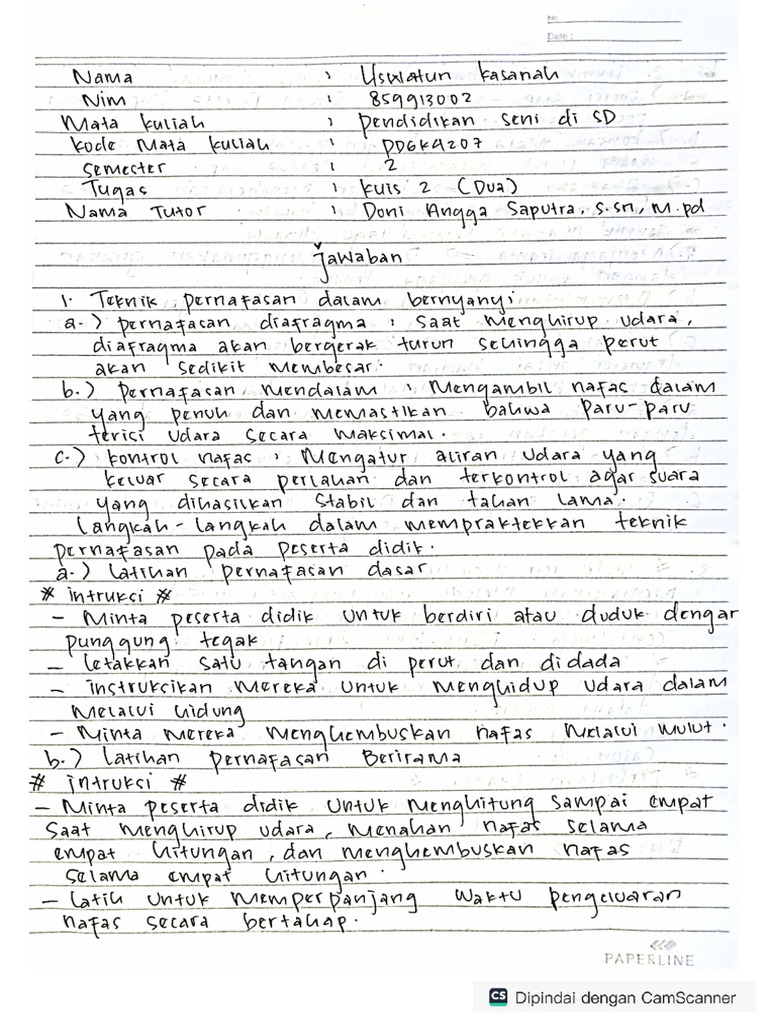 No:
Date:
Nama : Uswatun kasanah
Nim : 859913002
Mata kuliah : pendidikan seni di SD
kode Mata kuliah : PDGK4207
semester : 2
Tugas : kuis 2 (Dua)
Nama Tutor : Doni Angga Saputra, S.Sn, M.pd
Jawaban
1. Teknik pernafasan dalam bernyanyi:
a.) pernafasan diafragma : saat menghirup udara,
diafragma akan bergerak turun sehingga perut
akan sedikit membesar.
b.) Pernafasan mendalam : Mengambil nafas dalam
yang penuh dan memastikan bahwa paru-paru
terisi udara secara maksimal.
c.) kontrol nafas : Mengatur aliran udara yang
keluar secara perlahan dan terkontrol agar suara
yang dihasilkan stabil dan tahan lama.
Langkah-langkah dalam mempraktekkan teknik
pernafasan pada peserta didik.
a.) Latihan pernafasan dasar
# intruksi #
- Minta peserta didik untuk berdiri atau duduk dengar
punggung tegak
- Letakkan satu tangan di perut dan didada
- instruksikan mereka untuk menghidup udara dalam
melalui hidung
- Minta mereka menghembuskan nafas melalui mulut.
b.) Latihan pernafasan Berirama
# intruksi #
- Minta peserta didik untuk menghitung sampai empat
saat menghirup udara, menahan nafas selama
empat hitungan, dan menghembuskan nafas
selama empat hitungan.
- Latih untuk memperpanjang waktu pengeluaran
nafas secara bertahap.
PAPERLINE
CS Dipindai dengan CamScanner